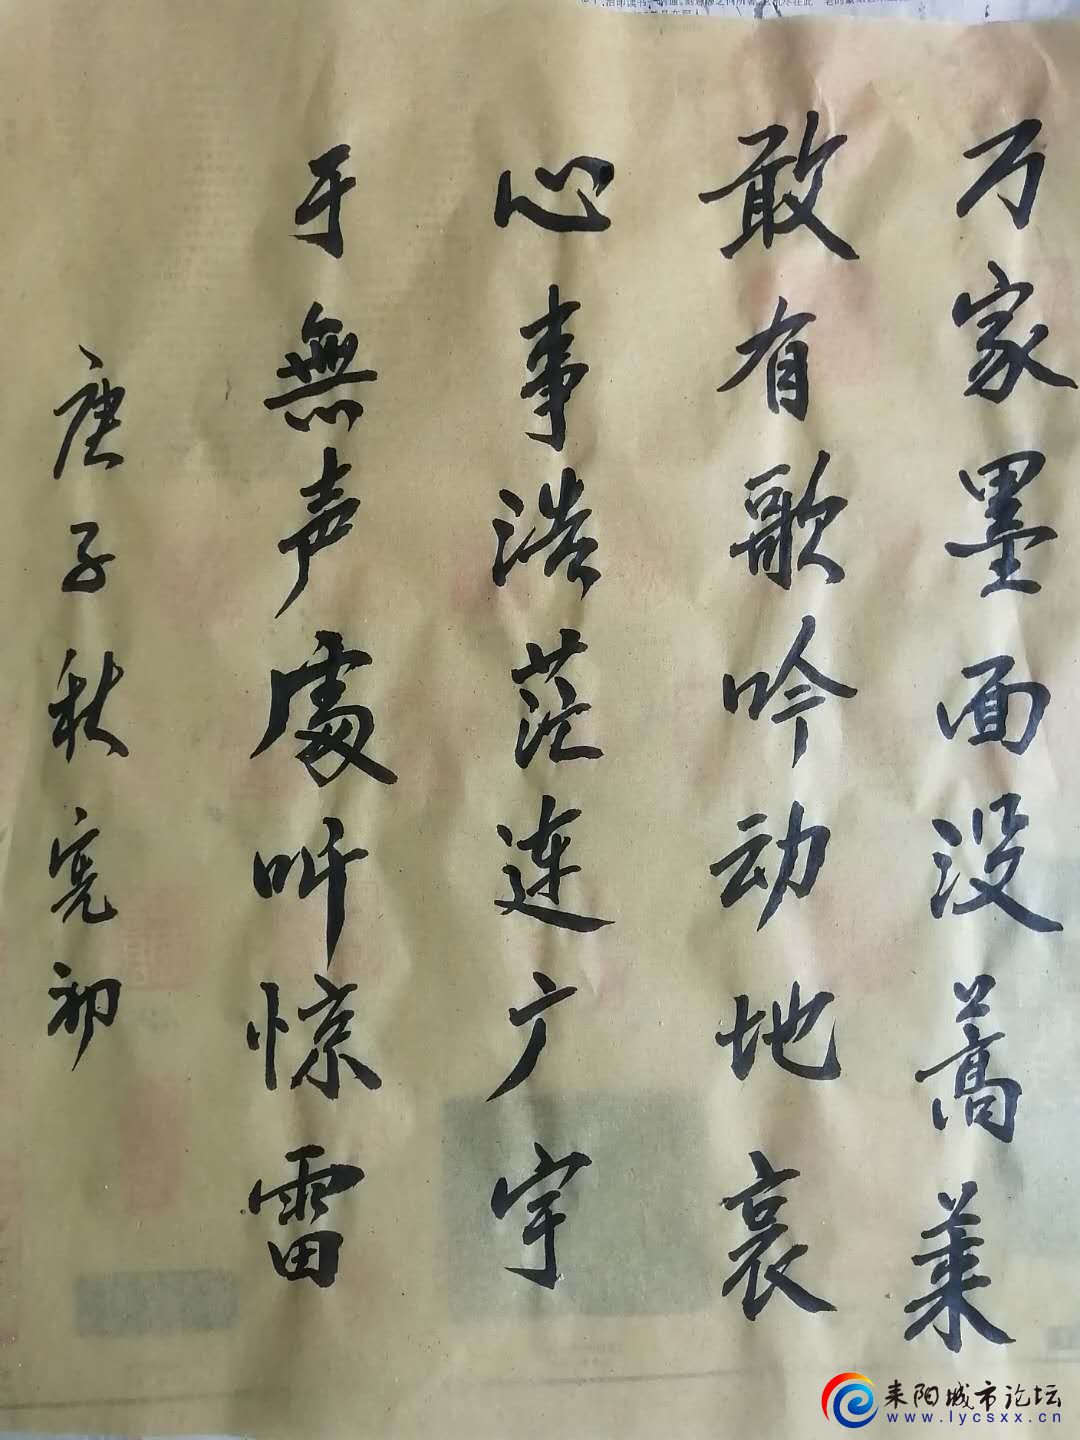 万家墨面没蒿莱
敢有歌吟动地哀
心事浩茫连广宇
于無声處听惊雷
庚子秋 初
耒阳城市论坛
www.lycsxx.cn